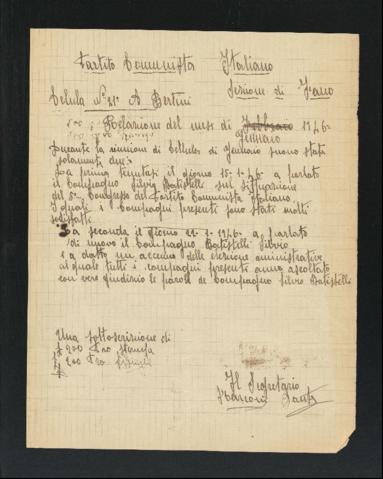 Partito Comunista Italiano
Sezione di Fano
Celula N° 21 A Bertini
Relazione del mese di Febbraio 1946
Gennaio
Durante la riunioni di cellula di Gennaio suono stati
solamenti due:
La prima tenutasi il giorno 15-1-46 a parlato
il Compagno Silvio Batistelli sul situazione
del 5° Congresso del Partito Comunista Italiano
i quali i Compagni presenti sono stati molti
sodisfatti
La seconda il giorno 22-1-1946 a parlato
di nuovo il Compagno Batistelli Silvio
e a datto un acceno delle elezione aministrative
ai quale tutti i compagni presenti anno ascoltato
con vero giudizio le parole del Compagno Silvio Batistelli
Una sottoscrizione di
£ 200 Pro stampa
£ 200 Pro
Il Segretario
Marconi